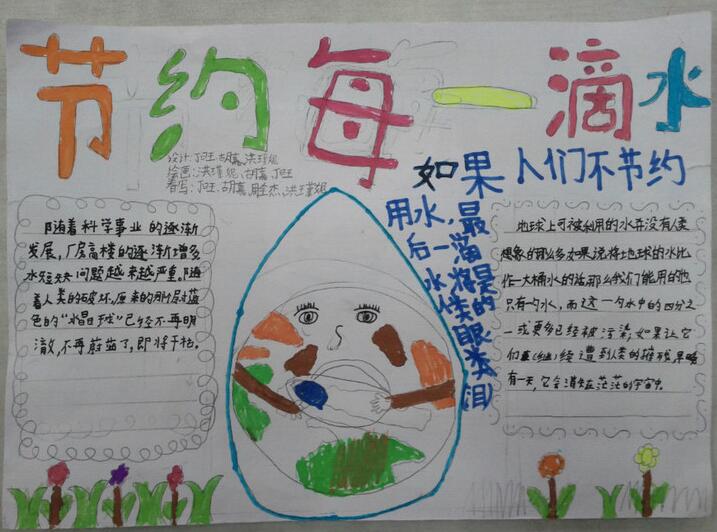 节约每一滴水
设计:丁旺、胡嘉、洪瑾妮
绘画:洪瑾妮、胡嘉、丁旺
书写:丁旺、胡嘉、洪瑾妮
如果人们不节约
用水,最
后一滴
水将是
人类的
眼泪
随着科学事业的逐渐
发展,厂房高楼的逐渐增多
水短缺问题越来越严重。随
着人类的破坏,原来的那层蓝
色的“水晶球”已经不再明
澈,不再蔚蓝了,即将干枯。
地球上可被利用的水并没有人类
想象的那么多如果说将地球的水比
作一大桶水的话,那么我们能用的也
只有一勺水,而这一勺水中的四分之
一或更多已经被污染,如果让它
们遭到人类的摧残,早晚
有一天,它会消失在茫茫的宇宙中。